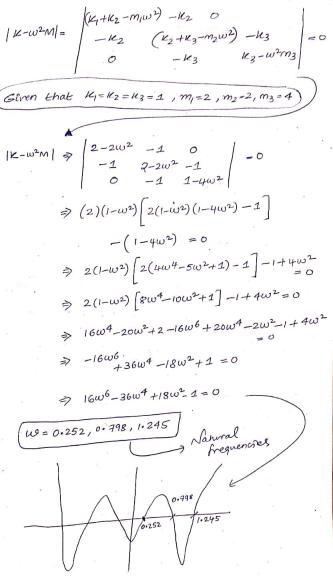 |K-ω²M| = | (K₁+K₂-m₁ω²) -K₂ 0 |
| -K₂ (K₂+K₃-m₂ω²) -K₃ | = 0
| 0 -K₃ K₃-ω²m₃ |
Given that K₁=K₂=K₃=1, m₁=2, m₂=2, m₃=4
|K-ω²M| ⇒ | 2-2ω² -1 0 |
| -1 2-2ω² -1 | =0
| 0 -1 1-4ω² |
⇒ (2)(1-ω²)[2(1-ω²)(1-4ω²)-1]
-(1-4ω²) = 0
⇒ 2(1-ω²)[2(4ω⁴-5ω²+1)-1]-1+4ω²
= 0
⇒ 2(1-ω²)[8ω⁴-10ω²+1]-1+4ω²=0
⇒ 16ω⁴-20ω²+2-16ω⁶+20ω⁴-2ω²-1+4ω²
= 0
⇒ -16ω⁶
+36ω⁴-18ω²+1=0
⇒ 16ω⁶-36ω⁴+18ω²-1=0
ω = 0.252, 0.798, 1.245
Natural
frequencies
0.798
0.252
1.245